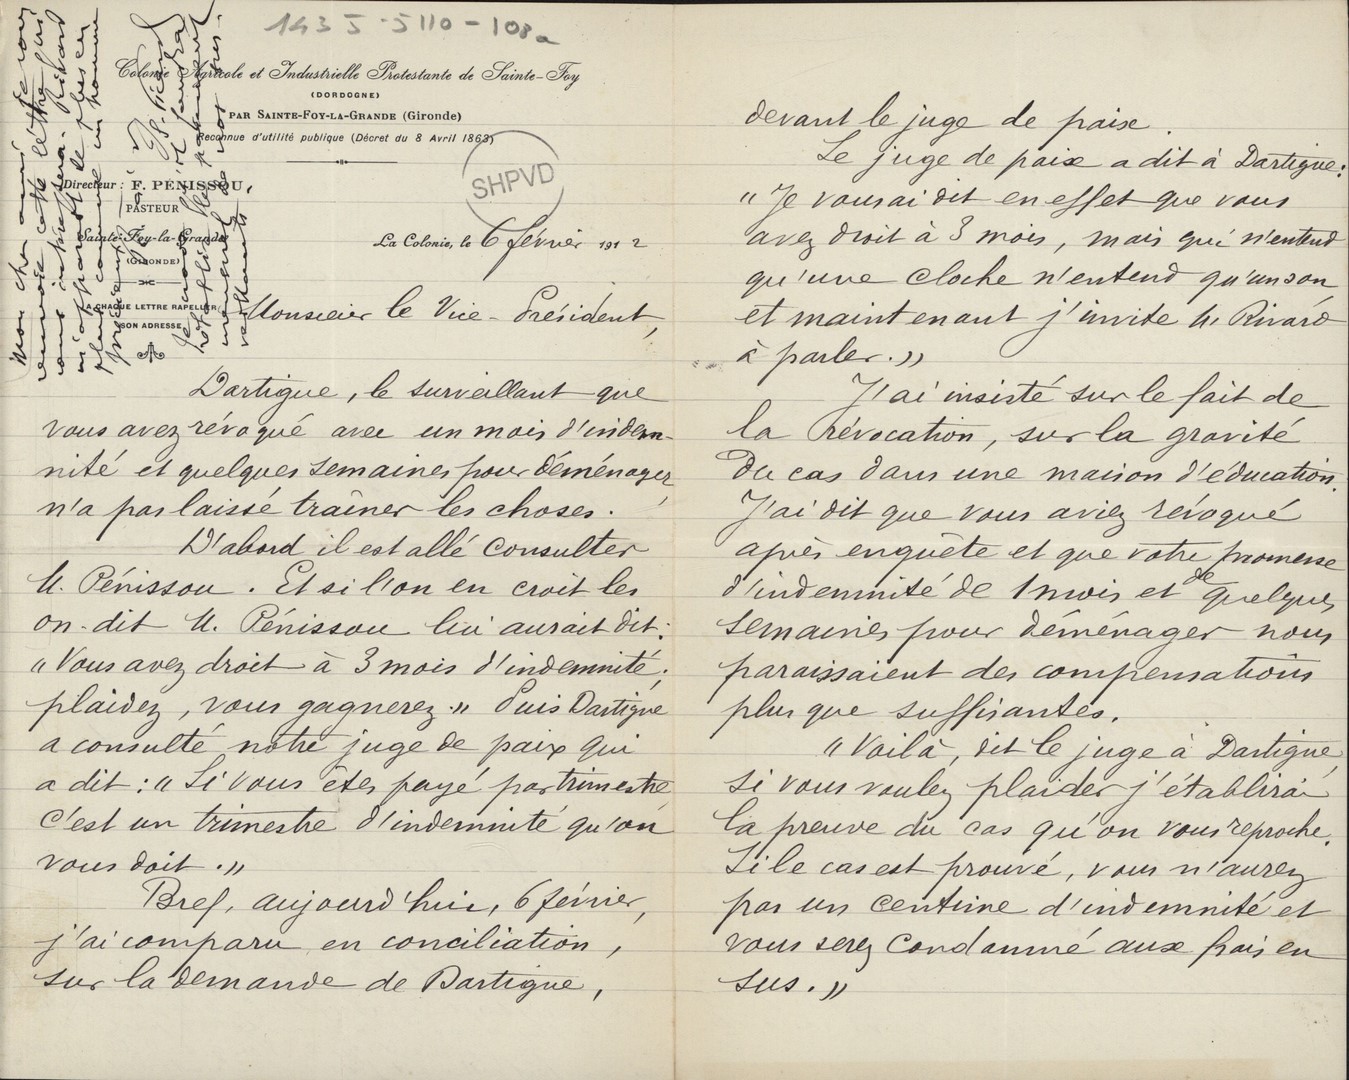 143 J 5110-108a
Colonie Agricole et Industrielle Protestante de Sainte-Foy
(DORDOGNE)
PAR SAINTE-FOY-LA-GRANDE (Gironde)
Reconnue d'utilité publique (Décret du 8 Avril 1863)
SHPVD
Directeur : F. PÉNISSOU,
PASTEUR
Sainte-Foy-la-Grande
(GIRONDE)
A CHAQUE LETTRE RAPELLER
SON ADRESSE
La Colonie, le 6 février 1912
Mon cher ami je vous
renvoie cette lettre qui
vous intéressera. Rivard
m'apparait de plus en
plus comme un homme
précieux
Monsieur le Vice-Président,
Dartigue, le surveillant que
vous avez révoqué avec un mois d'indem-
nité et quelques semaines pour déménager,
n'a pas laissé traîner les choses.
D'abord il est allé consulter
M. Pénissou. Et si l'on en croit les
on-dit M. Pénissou lui aurait dit:
"Vous avez droit à 3 mois d'indemnité;
plaidez, vous gagnerez." Puis Dartigue
a consulté notre juge de paix qui
a dit: "Si vous êtes payé par trimestre
c'est un trimestre d'indemnité qu'on
vous doit."
Bref, aujourd'hui, 6 février,
j'ai comparu en conciliation,
sur la demande de Dartigue,
devant le juge de paix.
Le juge de paix a dit à Dartigue:
"Je vous ai dit en effet que vous
avez droit à 3 mois, mais qui n'entend
qu'une cloche n'entend qu'un son
et maintenant j'invite M. Rivard
à parler."
J'ai insisté sur le fait de
la révocation, sur la gravité
du cas dans une maison d'éducation.
J'ai dit que vous aviez révoqué
après enquête et que votre promesse
d'indemnité de 1 mois et de quelques
semaines pour déménager nous
paraissaient des compensations
plus que suffisantes.
"Voilà, dit le juge à Dartigue,
si vous voulez plaider j'établirai
la preuve du cas qu'on vous reproche.
Si le cas est prouvé, vous n'aurez
pas un centime d'indemnité et
vous serez condamné aux frais en
sus."